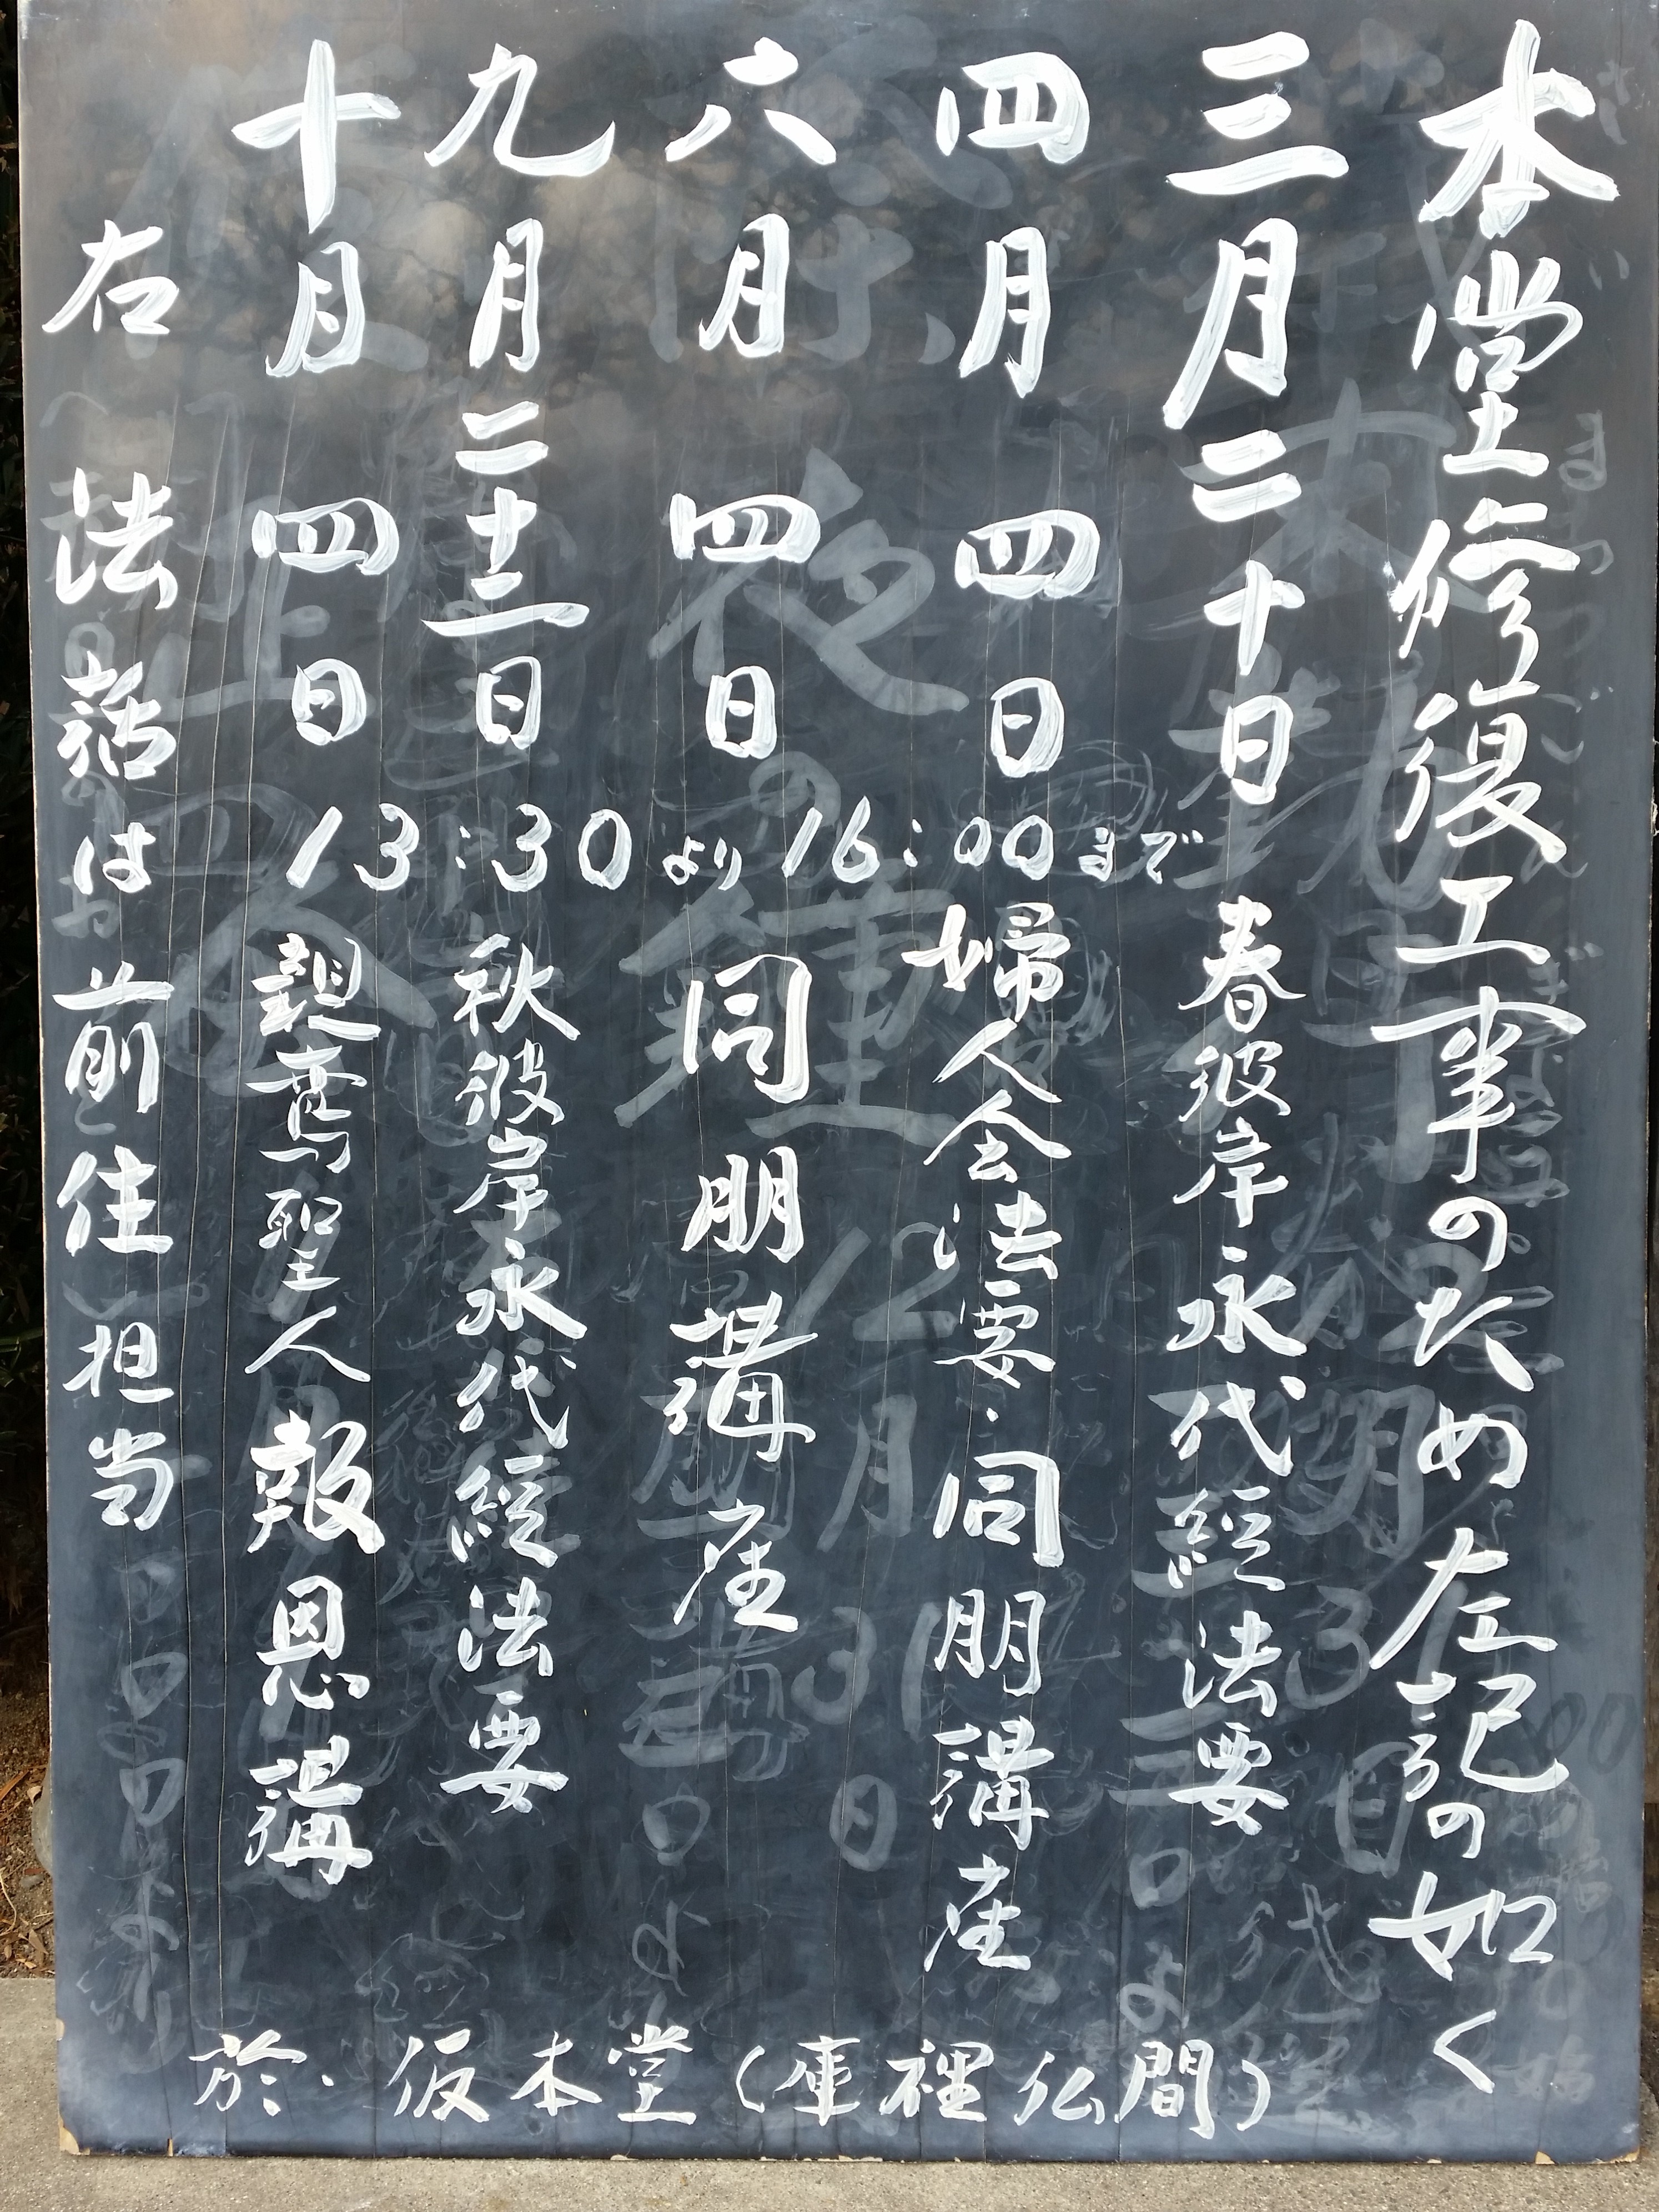 本堂修復工事のため左記の如く
三月二十日 春彼岸永代経法要
四月四日 婦人会法要・同朋講座
六月四日 同朋講座
九月二十三日 秋彼岸永代経法要
十月四日 親鸞聖人報恩講
13:30より16:00まで
右法話は前住担当
於・仮本堂(庫裡仏間)